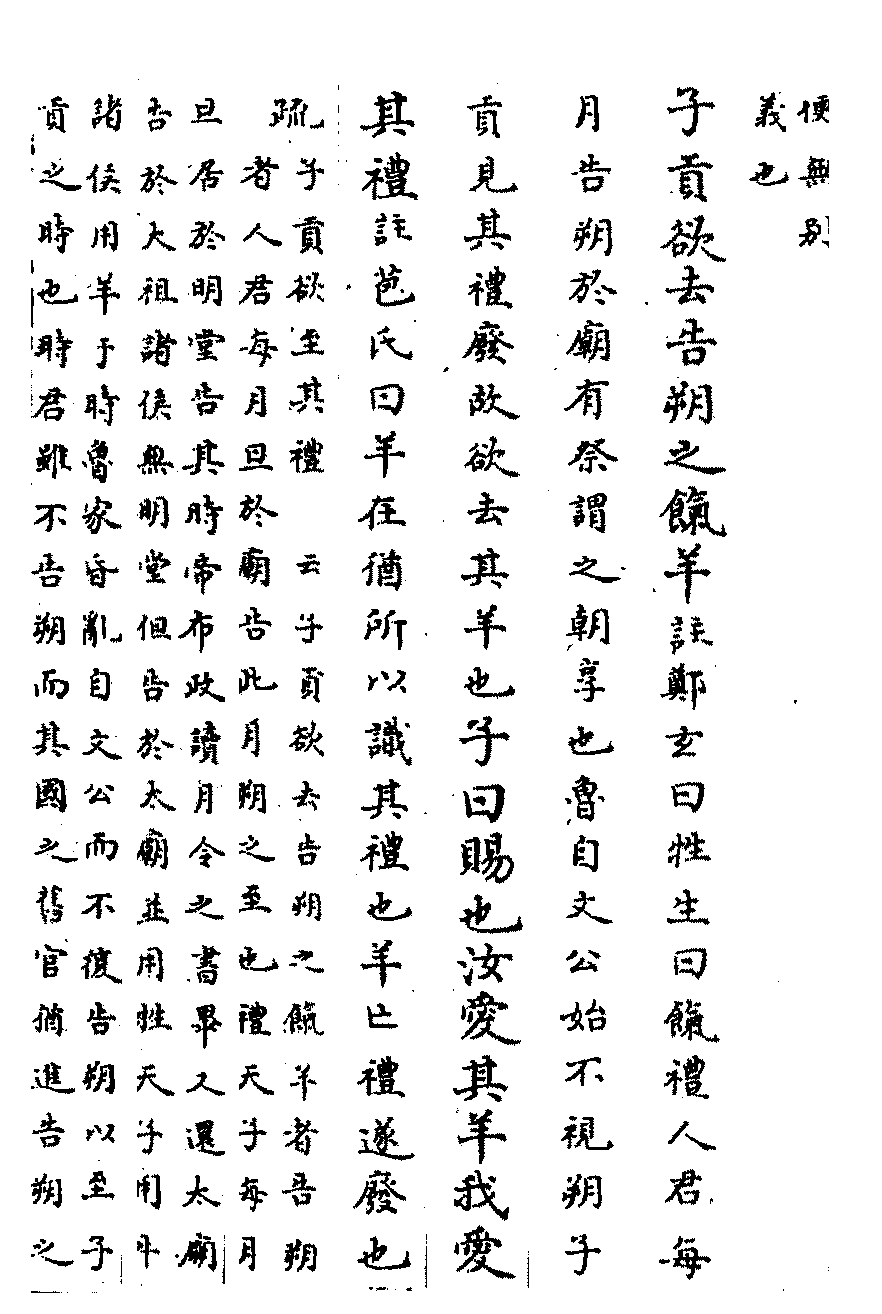 便無別
義也
子貢欲去告朔之餼羊註鄭玄曰牲生曰餼禮人君每
月告朔於廟有祭謂之朝享也魯自文公始不視朔子
貢見其禮廢故欲去其羊也子曰賜也汝愛其羊我愛
其禮註苞氏曰羊在猶所以識其禮也羊亡禮遂廢也
疏子貢欲至其禮 云子貢欲去告朔之餼羊者告朔
者人君每月旦於廟告此月朔之至也禮天子每月
旦居於明堂告其時帝布政讀月令之書畢又還太廟
告於大祖諸侯無明堂但告於太廟並用牲天子用牛
諸侯用羊于時魯家昏亂自文公而不復告朔以至子
貢之時也時君雖不告朔而其國之舊官猶進告朔之